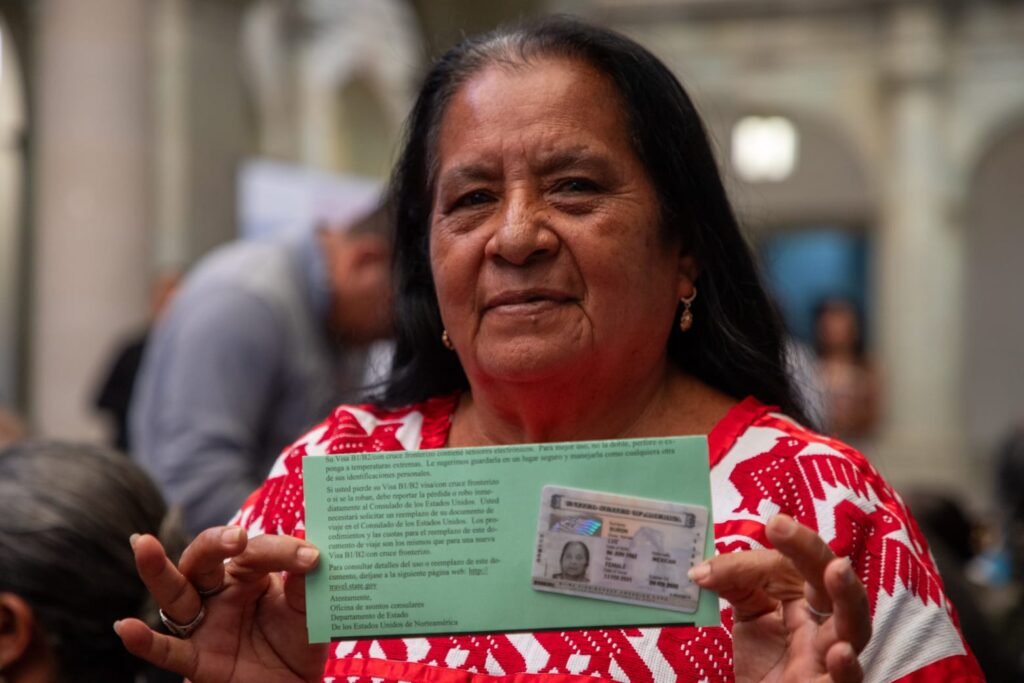 Su Visa B1/B2/con cruce fronterizo contiene sensores electrónicos. Para mejor uso, no la doble, perfore o ex-
ponga a temperaturas extremas. Le sugerimos guardarla en un lugar seguro y manejarla como cualquiera otra
de sus identificaciones personales.
Si usted pierde su Visa B1/B2 visa/con cruce fronterizo
o si se la roban, debe reportar la pérdida o robo inme-
diatamente al Consulado de los Estados Unidos. Usted
necesitará solicitar un reemplazo de su documento de
viaje en el Consulado de los Estados Unidos. Los pro-
cedimientos y las cuotas para el reemplazo de este do-
cumento de viaje son los mismos que para una nueva
Visa B1/B2/con cruce fronterizo.
Para consultar detalles del uso o reemplazo de este do-
cumento, diríjase a la siguiente página web: http://
travel.state.gov
Atentamente,
Oficina de asuntos consulares
Departamento de Estado
De los Estados Unidos de Norteamérica
FEMALE
MEXICAN